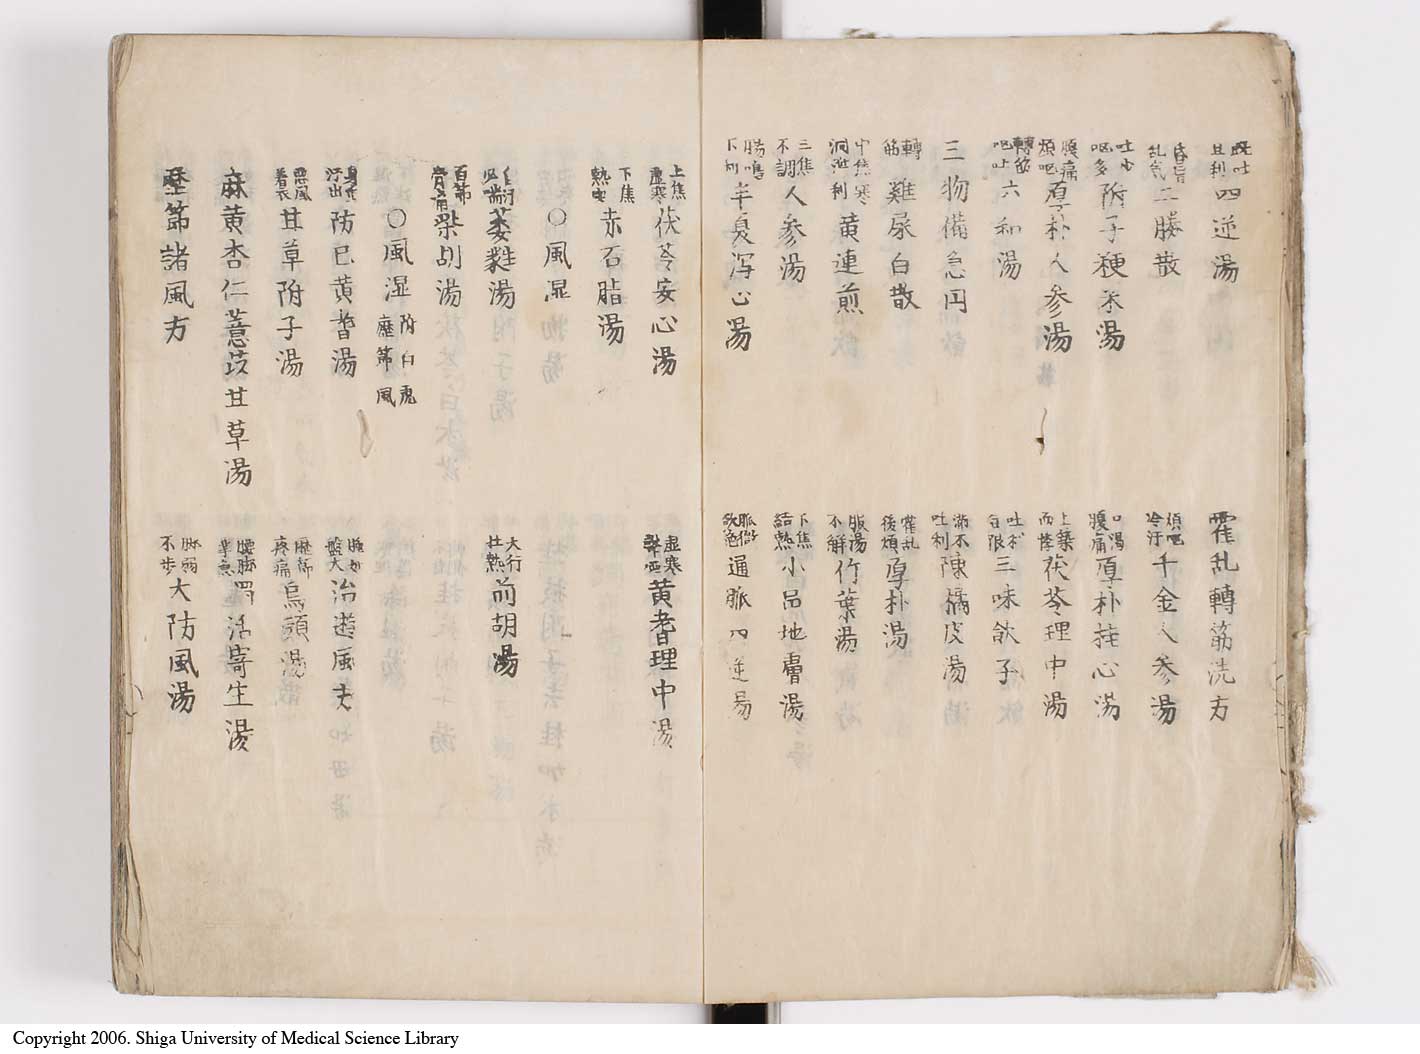 既吐且利 四逆湯
昏冒乱気 二勝散
吐少呕多 附子粳米湯
腹痛煩呕 厚朴人参湯
轉筋呕吐 六和湯
三物備急円
轉筋 雞尿白散
中焦寒洞泄利 黄連煎
三焦不調 人参湯
腸鳴下利 半夏泻心湯
霍乱轉筋洗方
煩呕冷汗 千金人参湯
口渇腹痛 厚朴桂心湯
上築而悸 茯苓理中湯
三味飲子
満不吐利 陳橘皮湯
霍乱後煩 厚朴湯
服湯不解 竹葉湯
下焦結熱 小品地膚湯
脈微欲絶 通脈四逆湯
上焦虚寒 茯苓安心湯
下焦熱 赤石脂湯
〇風湿
自汗 萎蕤湯
百節骨痛 柴胡湯
〇風湿 附白虎歴節風
身重汗出 防已黄耆湯
悪風着衣 甘草附子湯
麻黄杏仁薏苡甘草湯
歴節諸風方
虚寒 黄耆理中湯
大行壮熱 前胡湯
治遊風方
歴節疼痛 烏頭湯
獨活寄生湯
脚弱不歩 大防風湯
Copyright 2006. Shiga University of Medical Science Library